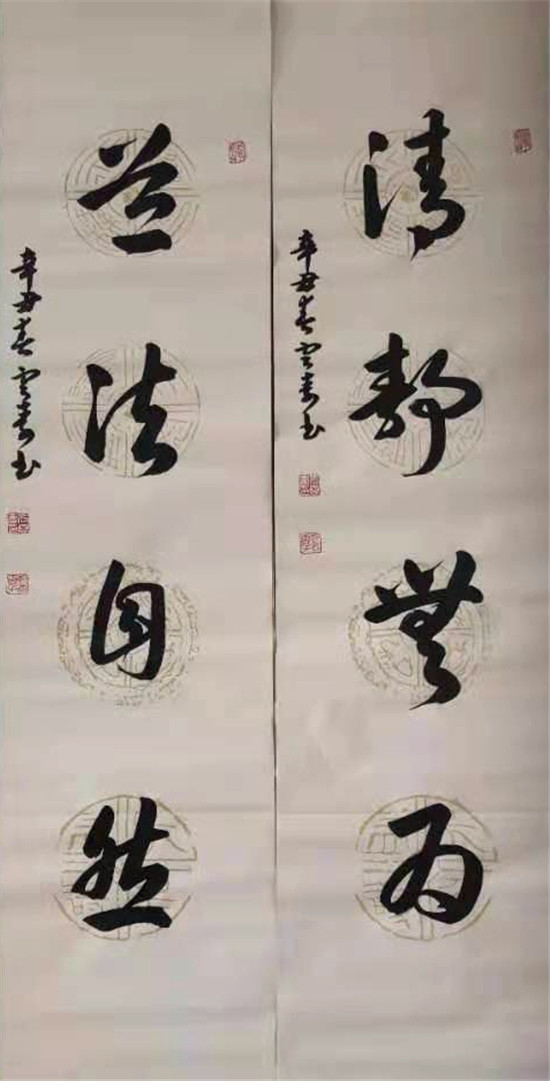 清静無为
辛丑春云青书
道法自然
辛丑春云青书